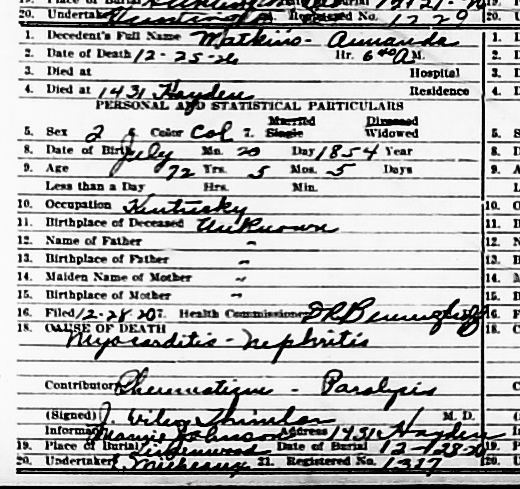 20. Undertaker 21. Registered No. 1229
1. Decedent's Full Name Watkins - Amanda
2. Date of Death 12-25-26 Hr. 6 40 A M.
3. Died at Hospital
4. Died at 1431 Hayden Residence
PERSONAL AND STATISTICAL PARTICULARS
5. Sex 2 6. Color Col 7. Married Single Divorced Widowed
8. Date of Birth July Mn. 20 Day 1854 Year
9. Age 72 Yrs. 5 Mos. 5 Days
Less than a Day Hrs. Min.
10. Occupation Kentucky
11. Birthplace of Deceased Unknown
12. Name of Father "
13. Birthplace of Father "
14. Maiden Name of Mother "
15. Birthplace of Mother "
16. Filed 12-28-20 7. Health Commissioner
18. CAUSE OF DEATH
Myocarditis - Nephritis
Contributory Rheumatism - Paralysis
(Signed) J. M. D.
Informant Johnson Address 1431 Hayden
19. Place of Burial Lindenwood Date of Burial 12-28-26
20. Undertaker 21. Registered No. 1317